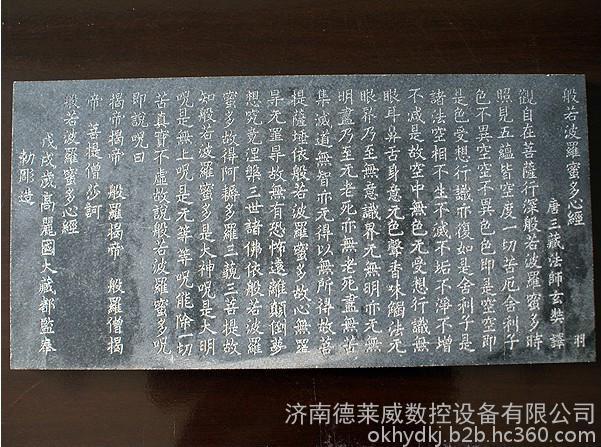 般若波羅蜜多心經
唐三藏法師玄奘譯 羽
觀自在菩薩行深般若波羅蜜多時
照見五蘊皆空度一切苦厄舍利子
色不異空空不異色色即是空空即
是色受想行識亦復如是舍利子是
諸法空相不生不滅不垢不淨不增
不減是故空中無色无受想行識無
眼耳鼻舌身意无色聲香味觸法无
眼界乃至無意識界无無明亦无無
明盡乃至无老死亦無老死盡無苦
集滅道無智亦无得以無所得故菩
提薩埵依般若波羅蜜多故心無罣
㝵无罣㝵故無有恐怖遠離顛倒夢
想究竟涅槃三世諸佛依般若波羅
蜜多故得阿耨多羅三藐三菩提故
知般若波羅蜜多是大神呪是大明
呪是無上呪是无等等呪能除一切
苦真實不虛故說般若波羅蜜多呪
即說呪曰
揭帝揭帝 般羅揭帝 般羅僧揭
帝 菩提僧莎訶
般若波羅蜜多心經
戊戌歲高麗國大藏都監奉
勅彫造
济南德莱威数控设备有限公司
okhydkj.b2b.hc360.com